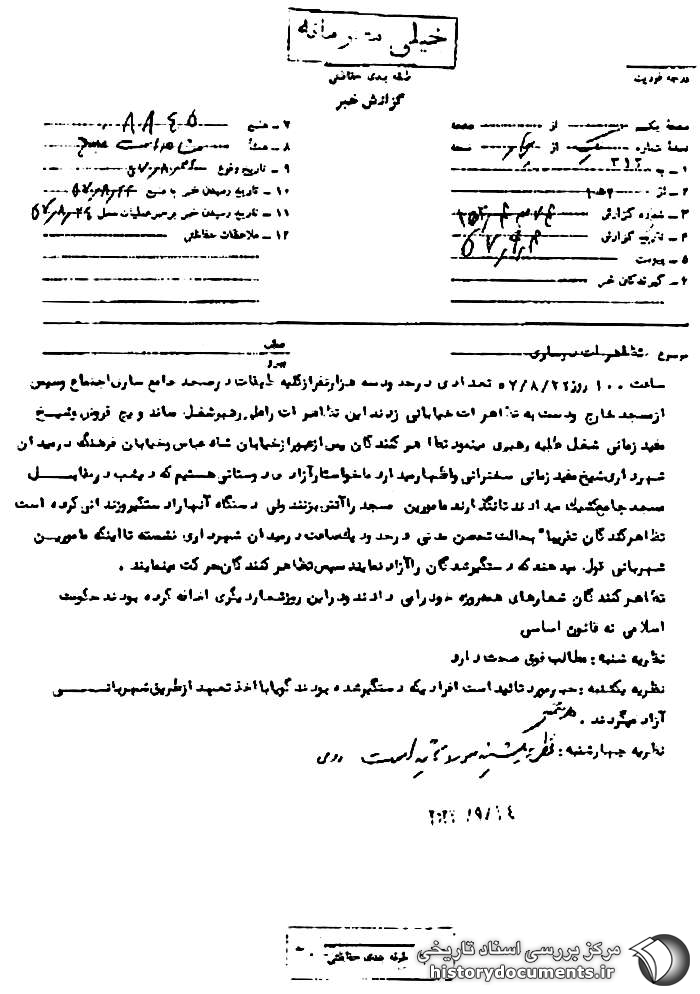 خیلی محرمانه
طبقه بندی حفاظتی
درجه فوریت
گزارش خبر
صفحه یک از صفحه
نسخه شماره یک از چهار نسخه
۱ ـ به ۳۱۲
۲ ـ از
۳ ـ شماره گزارش
۴ ـ تاریخ گزارش ۵۷٫۹٫۴
۵ ـ پیوست
۶ ـ گیرندگان خبر
۷ ـ منبع ۸۸۴۵
۸ ـ منشأ
۹ ـ تاریخ وقوع
۱۰ ـ تاریخ رسیدن خبر به منبع
۱۱ ـ تاریخ رسیدن خبر برهبر عملیات محل ۵۷٫۸٫۲۴
۱۲ ـ ملاحظات حفاظتی
عطف
پیرو
موضوع : تظاهرات درساری
ساعت ۱۰۰ روز ۵۷/۸/۲۲ تعدادی درحدود سه هزارنفرازکلیه طبقات درمسجد جامع ساری اجتماع وسپس
ازمسجد خارج ودست به تظاهرات خیابانی زدند این تظاهرات را رهبرشغل و قروض وشیخ
مفید زمانی شغل طلبه رهبری مینمود تظاهرکنندگان پس ازعبورازخیابان شاه عباس وخیابان فرهنگ درمیدان
شهرداری شیخ مفید زمانی سخنرانی واظهارمیدارد ماخواستارآزادی دوستانی هستیم که دیشب درمقابل
مسجد جامع کشیک میدادند تانگذارند مامورین مسجد راآتش بزنند ولی دستگاه آنهارادستگیروزندانی کرده است
تظاهرکنندگان تقریباً بحالت تحصن مدنی درحدود یکساعت درمیدان شهرداری نشسته تااینکه مامورین
شهربانی قول میدهند که دستگیرشدگان راآزاد نمایند سپس تظاهرکنندگان حرکت مینمایند .
تظاهرکنندگان شعارهای همه روزه خودرامی دادند ودراین روزشعاردیگری اضافه کرده بودند حکومت
اسلامی نه قانون اساسی
نظریه شنبه : مطالب فوق صحت دارد
نظریه یکشنبه : خبرمورد تائید است افرادیکه دستگیرشده بودند گویابااخذ تعهد ازطریق شهربانی
آزاد میگردند .
نظریه چهارشنبه : نظریه یکشنبه مورد تائید است
۹/۱۴
طبقه بندی حفاظتی
مرکز بررسی اسناد تاریخی
historydocuments.ir